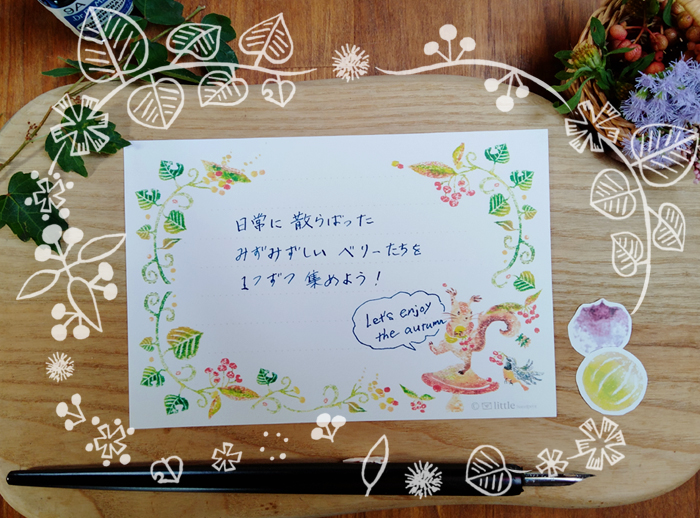 日常に 散らばった
みずみずしい ベリーたちを
1つずつ 集めよう！
Let's enjoy
the aurumn
© little